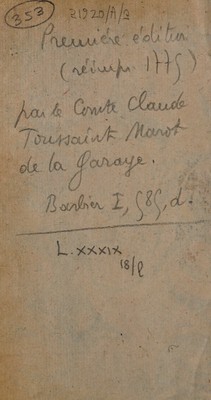 353 21920/A/2
Première édition
(réimpr. 1775)
par le Comte Claude
Toussaint Marot
de la Garaye.
Barbier I, 585, d.
L. XXXIX
18/8